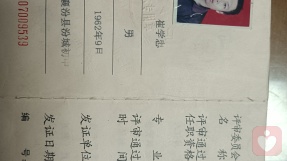 崔学忠
男
1962年9月
襄汾县汾城初
07009539
评审委员会
名称
评审通过
任职资格
专业
评审通过
时间
发证单位
发证日期
编号